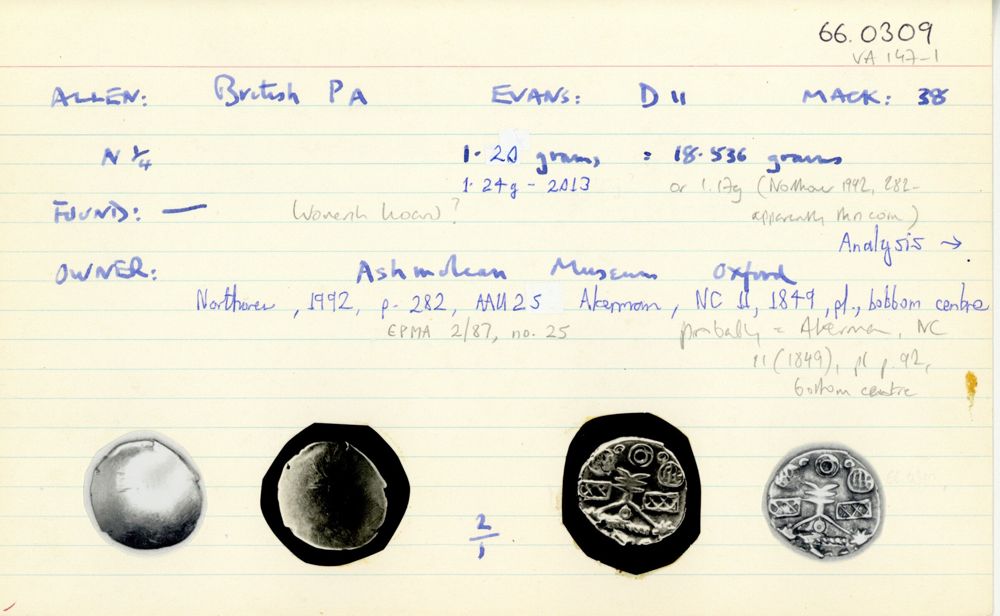 66.0309
VA 147-1
ALLEN: British P A EVANS: D 11 MACK: 38
N 1/4 1.20 grams, = 18.536 grams
1.24g - 2013 or 1.17g (Northover 1992, 282-
apparently this coin)
FOUND: — Wonersh hoard?
Analysis →
OWNER: Ashmolean Museum Oxford
Northover, 1992, p. 282, AAU 25 Akerman, NC 11, 1849, pl., bottom centre
EPMA 2/87, no. 25 probably = Akerman, NC
11 (1849), pl p. 92,
bottom centre
2/1